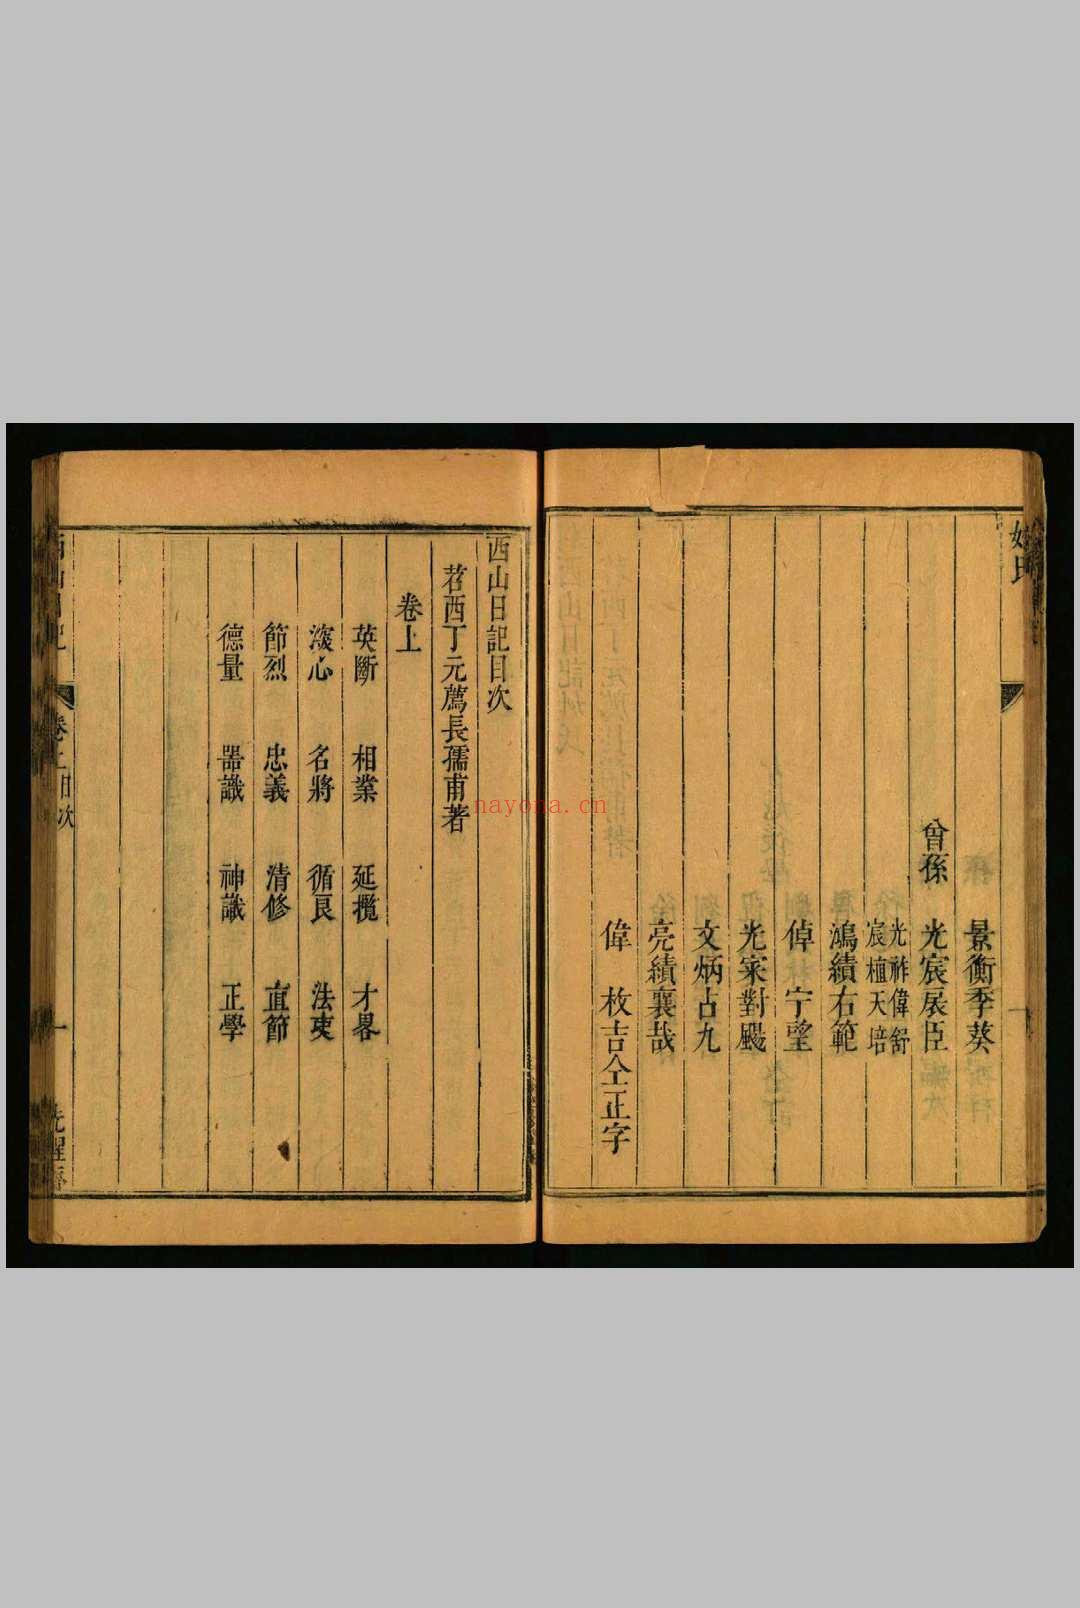 姓氏
景衡季葵
曾孫
光宸展臣
光祚偉舒
宸植天培
鴻績右範
倬宁望
光寀對颺
文炳占九
亮績襄哉
偉 枚吉仝正字
西山日記目次
苕西丁元薦長孺甫著
卷上
英斷 相業 延攬 才畧
深心 名將 循良 法吏
節烈 忠義 清修 直節
德量 器識 神識 正學
西山日記
卷上目次
一
先醒齋
nayona.cn